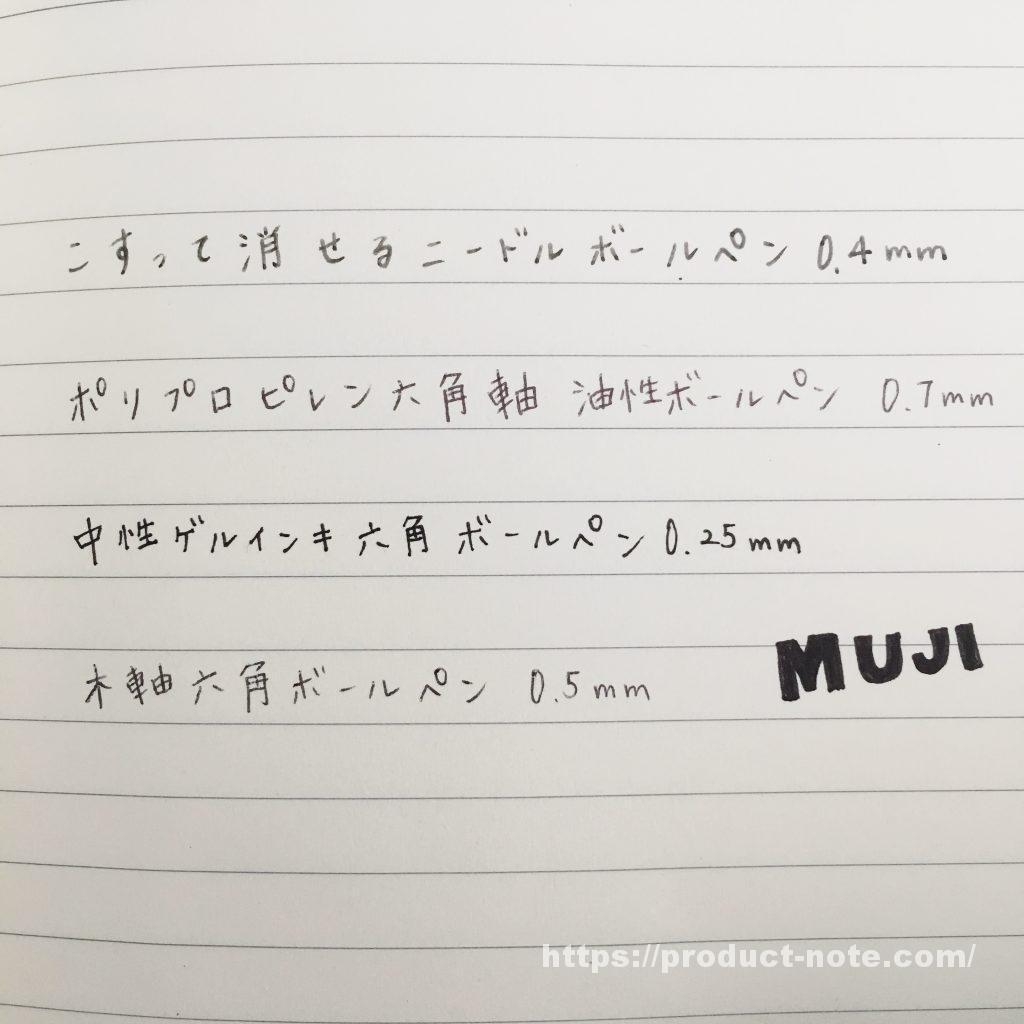 こすって消せるニードルボールペン 0.4mm
ポリプロピレン六角軸 油性ボールペン 0.7mm
中性ゲルインキ六角ボールペン 0.25mm
木軸六角ボールペン 0.5mm
MUJI
https://product-note.com/